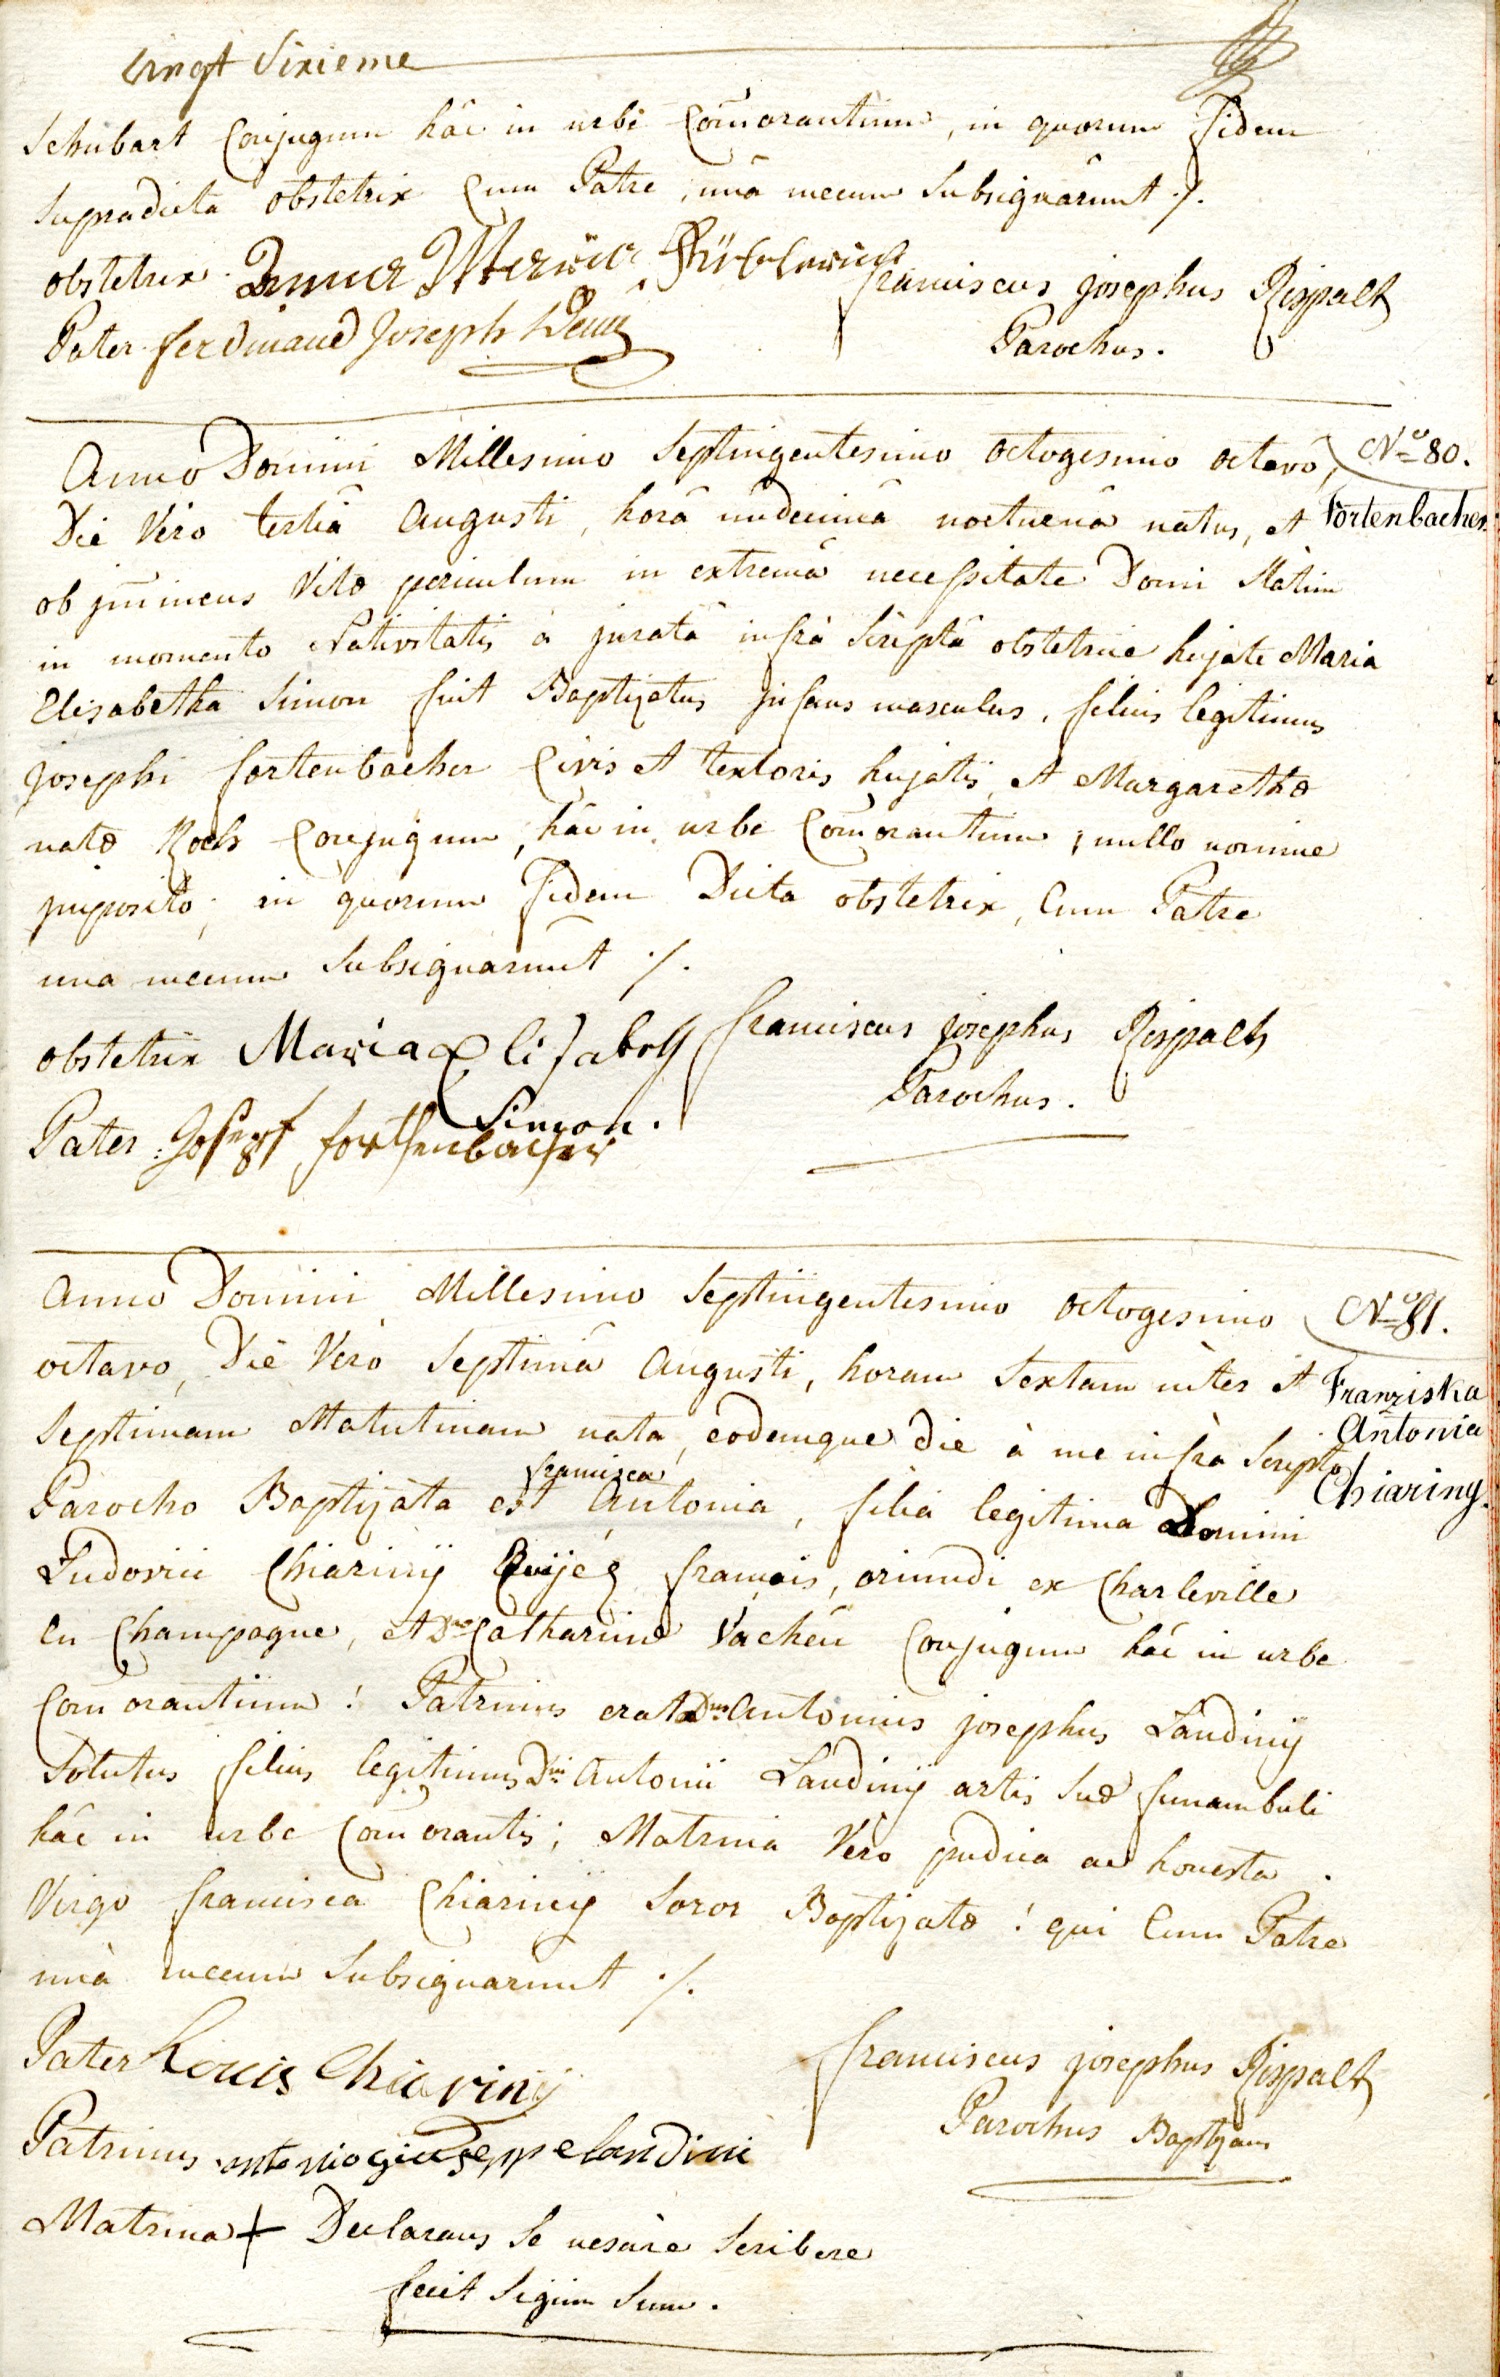 vingt Sixieme
Schubart Conjugum hâc in urbe Com̄orantium, in quorum fidem
Supradicta obstetrix cum Patre, unâ mecum Subsignârunt ./.
obstetrix Franciscus josephus Rispalt
Pater ferdinand Joseph Parochus.
Anno Domini Millesimo Septingentesimo octogesimo octavo, N.º 80.
Die Vero tertiâ Augusti, horâ undecimâ nocturnâ natus, et Fortenbacher
ob jm̄inens Vitæ periculum in extremâ necessitate Domi Statim
in momento Nativitatis à juratâ infrà Scriptâ obstetrice hujate Maria
Elisabetha Simon fuit Baptizatus jnfans masculus, filius legitimus
josephi fortenbacher Civis et textoris hujatis, et Margarethæ
natæ Koch Conjugum, hâc in urbe Com̄orantium, nullo nomine
jmposito, in quorum fidem Dicta obstetrix, Cum Patre
una mecum Subsignarunt ./.
obstetrix Maria Elisabeth Franciscus josephus Rispalt
Simon. Parochus.
Pater: Joseph forthenbacher
Anno Domini Millesimo Septingentesimo octogesimo N.º 81.
octavo, Diê Verò Septimâ Augusti, horam Sextam inter et Franziska
Septimam Matutinam nata, eodemque die à me infrà Scripto Antonia
francisca
Parocho Baptizata est Antonia, filia legitima Domini Chiariny.
Ludovici Chiarinij françois, oriundi ex Charleville
en Champagne, et Dnæ Catharinæ Vacheu Conjugum hâc in urbe
Com̄orantium! Patrinus erat Dnus Antonius josephus Landinij
Solutus filius legitimus Dni Antonii Landinij artis Suæ funambuli
hâc in urbe Com̄orantis; Matrina Vero pudica ac honesta
Virgo francisca Chiarinij Soror Baptizatæ! qui Cum Patre
unà mecum Subsignarunt ./.
Pater Louis Chiarinij Franciscus josephus Rispalt
Parochus Baptizans
Patrinus antonio giuseppe landini
Matrina + Declarans Se nescire Scribere
fecit Signum Suum.